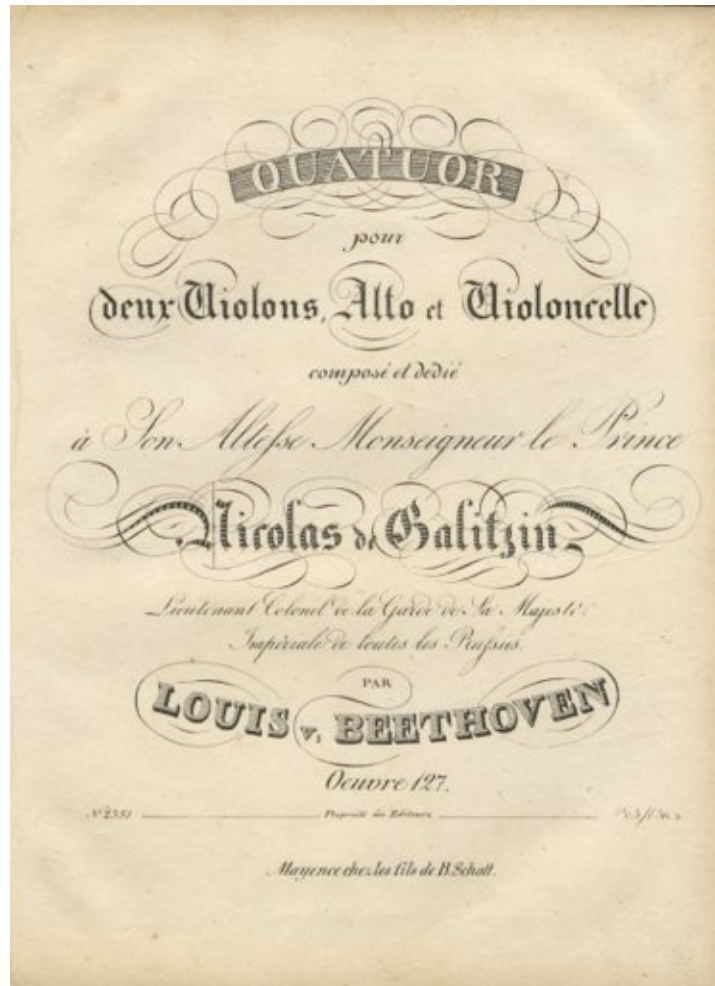 QUATUOR
pour
deux Violons, Alto et Violoncelle
composé et dedié
à Son Altesse Monseigneur le Prince
Nicolas de Galitzin
Lieutenant Colonel de la Garde de Sa Majesté
Impériale de toutes les Russies.
PAR
LOUIS v. BEETHOVEN
Oeuvre 127.
Nº 2351 Propriété des Editeurs
Mayence chez les fils de B. Schott.